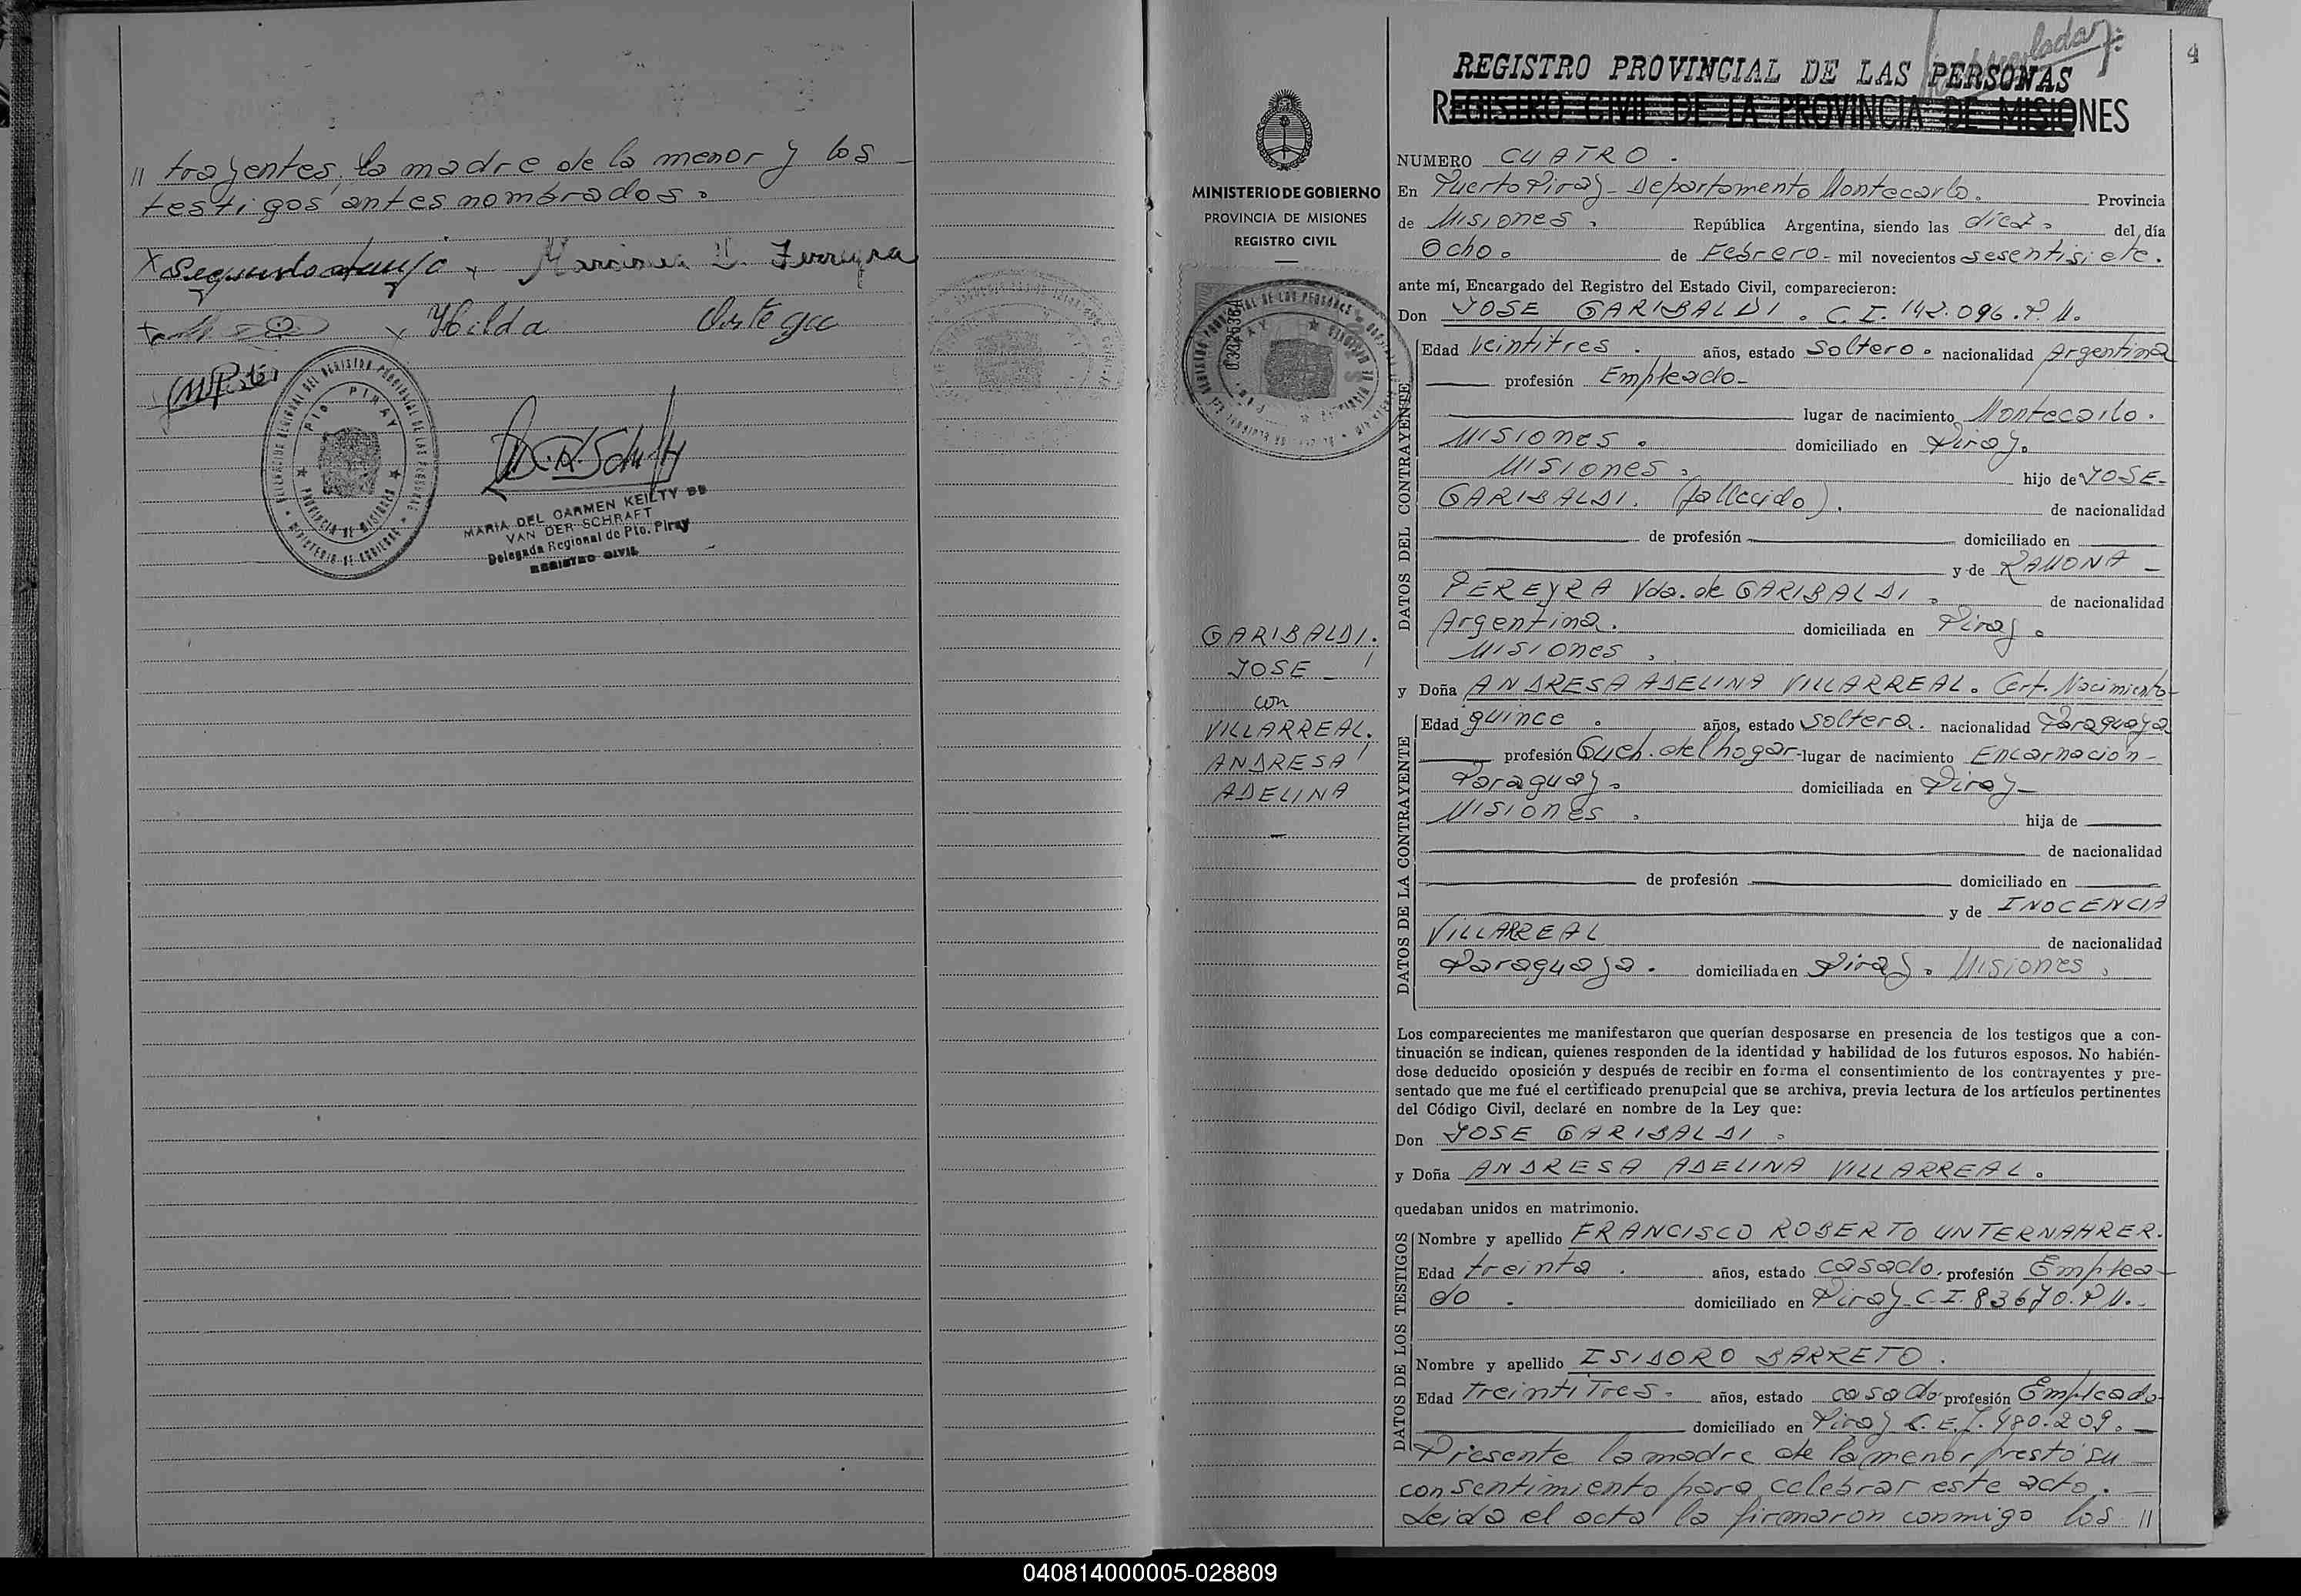 // trayentes, la madre de la menor y los
testigos antes nombrados.
Hilda Ortega
DELEGACION REGIONAL DEL REGISTRO PROVINCIAL DE LAS PERSONAS
PTO. PIRAY
PROVINCIA DE MISIONES
MINISTERIO DE GOBIERNO
MARIA DEL CARMEN KEILTY DE
VAN DER SCHRAFT
Delegada Regional de Pto. Piray
REGISTRO CIVIL
4
REGISTRO PROVINCIAL DE LAS PERSONAS
REGISTRO CIVIL DE LA PROVINCIA DE MISIONES
MINISTERIO DE GOBIERNO
PROVINCIA DE MISIONES
REGISTRO CIVIL
GARIBALDI.
JOSE
con
VILLARREAL.
ANDRESA
ADELINA
NUMERO CUATRO.
En Puerto Piray - Departamento Montecarlo. Provincia
de Misiones. República Argentina, siendo las diez. del día
Ocho. de Febrero - mil novecientos sesentisiete.
ante mí, Encargado del Registro del Estado Civil, comparecieron:
Don JOSE GARIBALDI. C.I. 142.096. P.M.
DATOS DEL CONTRAYENTE
Edad Veintitres. años, estado Soltero. nacionalidad Argentina
profesión Empleado -
lugar de nacimiento Montecarlo.
Misiones. domiciliado en Piray.
Misiones. hijo de JOSE -
GARIBALDI. (fallecido). de nacionalidad
de profesión domiciliado en
y de RAMONA -
PEREYRA Vda. de GARIBALDI. de nacionalidad
Argentina. domiciliada en Piray.
Misiones.
y Doña ANDRESA ADELINA VILLARREAL. Cert. Nacimiento -
DATOS DE LA CONTRAYENTE
Edad quince. años, estado Soltera. nacionalidad Paraguaya
profesión Queh. del hogar - lugar de nacimiento Encarnación -
Paraguay. domiciliada en Piray -
Misiones. hija de
de nacionalidad
de profesión domiciliado en
y de INOCENCIA
VILLARREAL de nacionalidad
Paraguaya. domiciliada en Piray. Misiones.
Los comparecientes me manifestaron que querían desposarse en presencia de los testigos que a con-
tinuación se indican, quienes responden de la identidad y habilidad de los futuros esposos. No habién-
dose deducido oposición y después de recibir en forma el consentimiento de los contrayentes y pre-
sentado que me fué el certificado prenupcial que se archiva, previa lectura de los artículos pertinentes
del Código Civil, declaré en nombre de la Ley que:
Don JOSE GARIBALDI.
y Doña ANDRESA ADELINA VILLARREAL.
quedaban unidos en matrimonio.
DATOS DE LOS TESTIGOS
Nombre y apellido FRANCISCO ROBERTO UNTERNAHRER.
Edad treinta. años, estado casado. profesión Emplea-
do. domiciliado en Piray - C.I. 83670. P.M. -
Nombre y apellido ISIDORO BARRETO.
Edad Treintitres. años, estado casado profesión Empleado -
domiciliado en Piray 480.209. -
Presente la madre de la menor prestó su
consentimiento para celebrar este acto. -
Leida el acta la firmaron conmigo los //
040814000005-028809